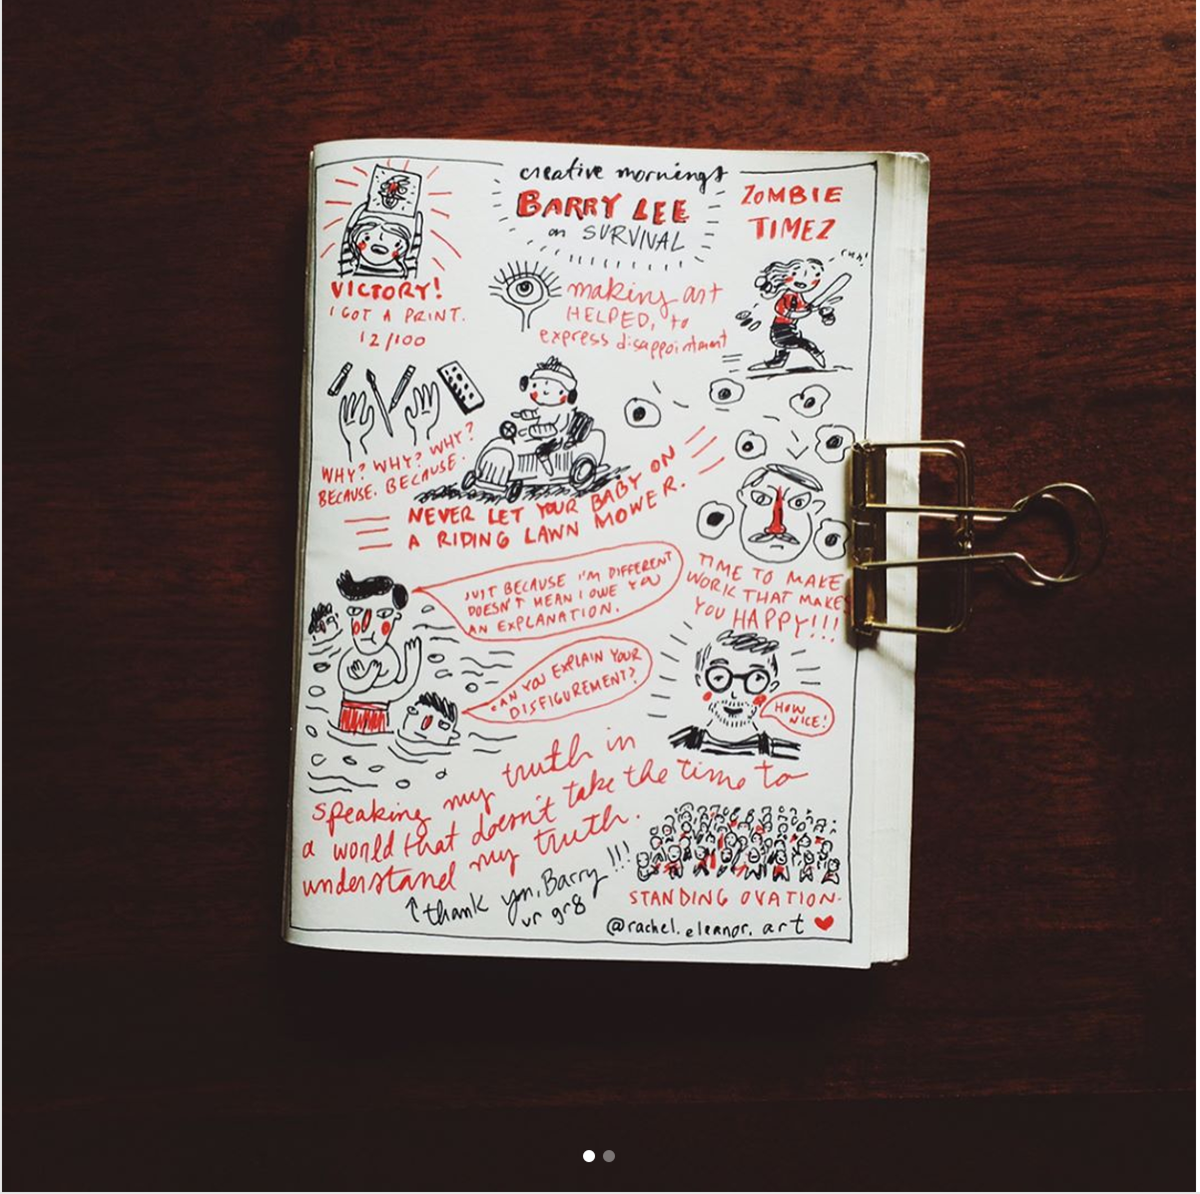 creative mornings
BARRY LEE
on SURVIVAL
ZOMBIE
TIMEZ
VICTORY!
I GOT A PRINT.
12/100
making art
HELPED, to
express disappointment
WHY? WHY? WHY?
BECAUSE. BECAUSE.
NEVER LET YOUR BABY ON
A RIDING LAWN MOWER.
TIME TO MAKE
WORK THAT MAKES
YOU HAPPY!!!
JUST BECAUSE I'M DIFFERENT
DOESN'T MEAN I OWE YOU
AN EXPLANATION.
CAN YOU EXPLAIN YOUR
DISFIGUREMENT?
HOW
NICE!
speaking my truth in
a world that doesn't take the time to
understand my truth.
thank you, Barry !!!
ur gr8
STANDING OVATION.
@rachel.eleanor.art